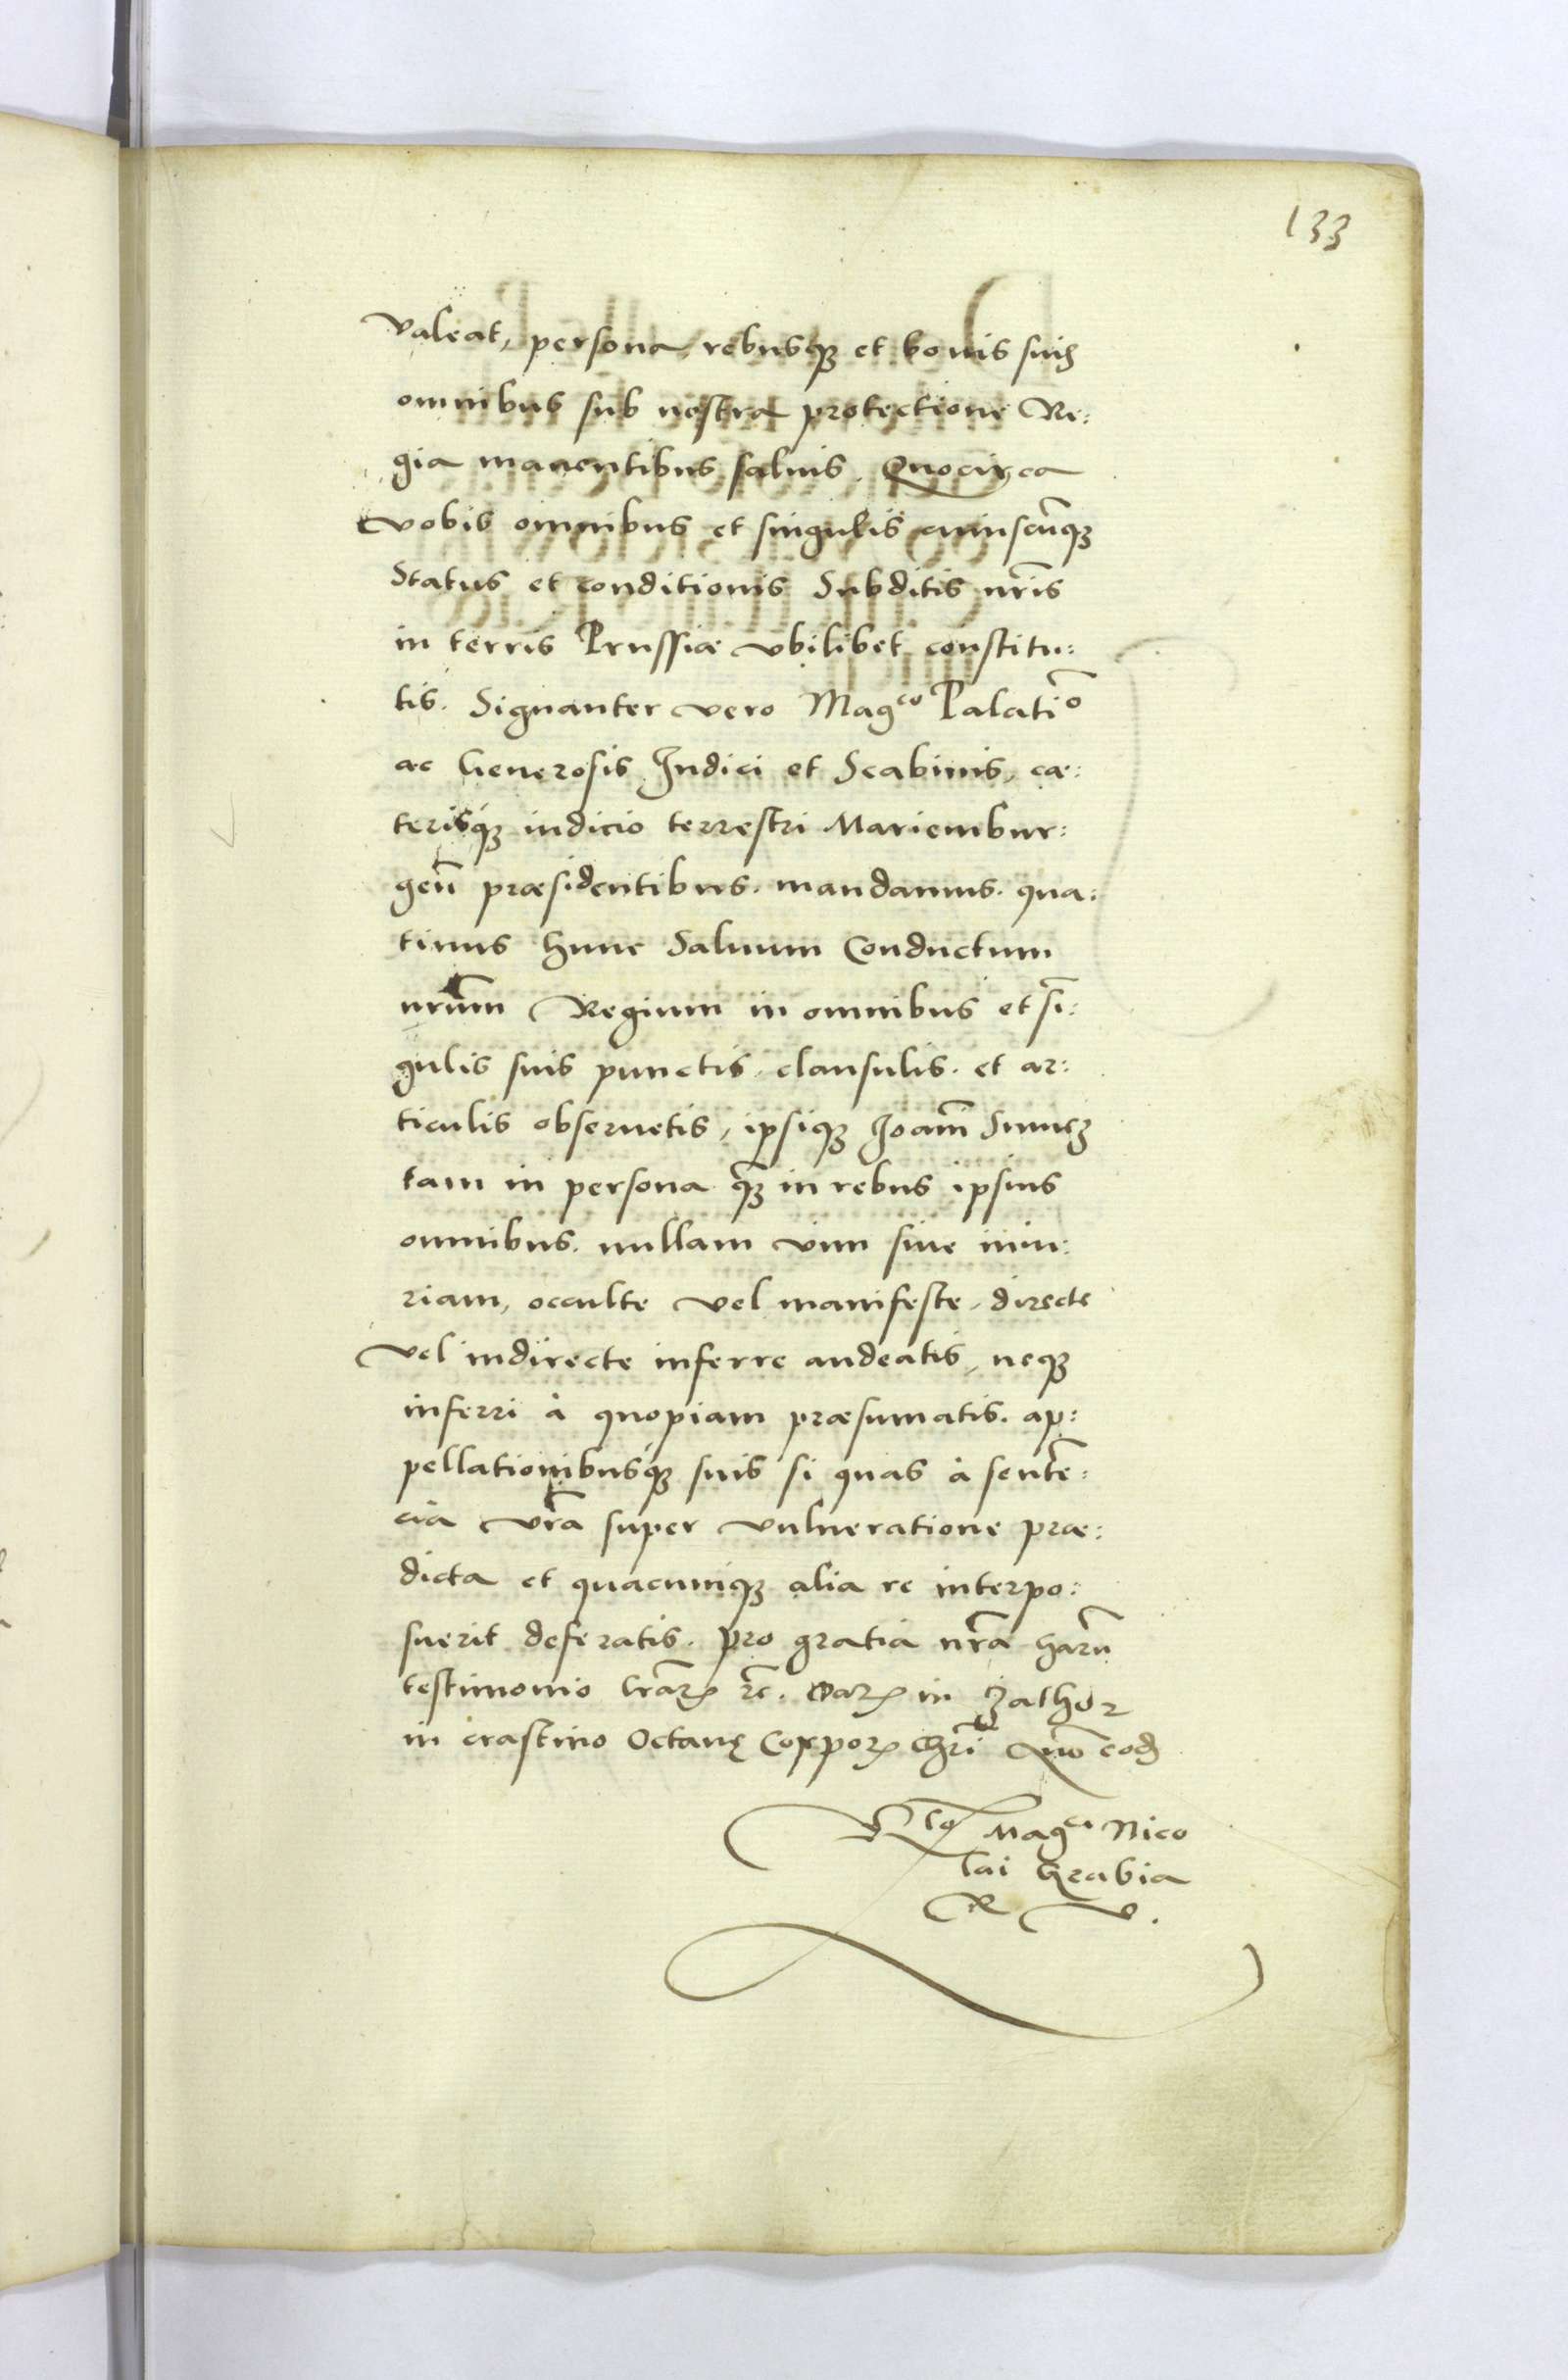 133
valeat, persona, rebusq₃ et bonis suis
omnibus sub nostra protectione Re:
gia manentibus saluis. Quocirca
vobis omnibus et singulis cuiuscūq₃
Status et conditionis Subditis nr̃is
in terris Prussiæ vbilibet constitu:
tis. Signanter vero Magco Palatiō
ac Generosis Iudici et Scabinis, cæ:
terisq₃ iudicio terrestri Mariembur:
geñ præsidentibus. mandamus. qua:
tinus hunc Saluum Conductum
nr̃um Regium in omnibus et sī:
gulis suis punctis. clausulis. et ar:
ticulis obseruetis, ipsiq₃ Joanñi
tam in persona q̃₃ in rebus ipsius
omnibus. nullam vim siue iniu:
riam, occulte vel manifeste, directe
vel indirecte inferre audeatis, neq₃
inferri à quopiam præsumatis. ap:
pellationibusq₃ suis si quas à sentē:
cia vr̃a super vulneratione præ:
dicta et quacunq₃ alia re interpo:
suerit deferatis. pro gratia nr̃a harū
testimonio lrãrꝫ rc̃. Datꝫ in Zathor
in crastino Octauę Corporꝫ Chrī Anō eod
Rlo Magci Nico
lai Grabia
R V.